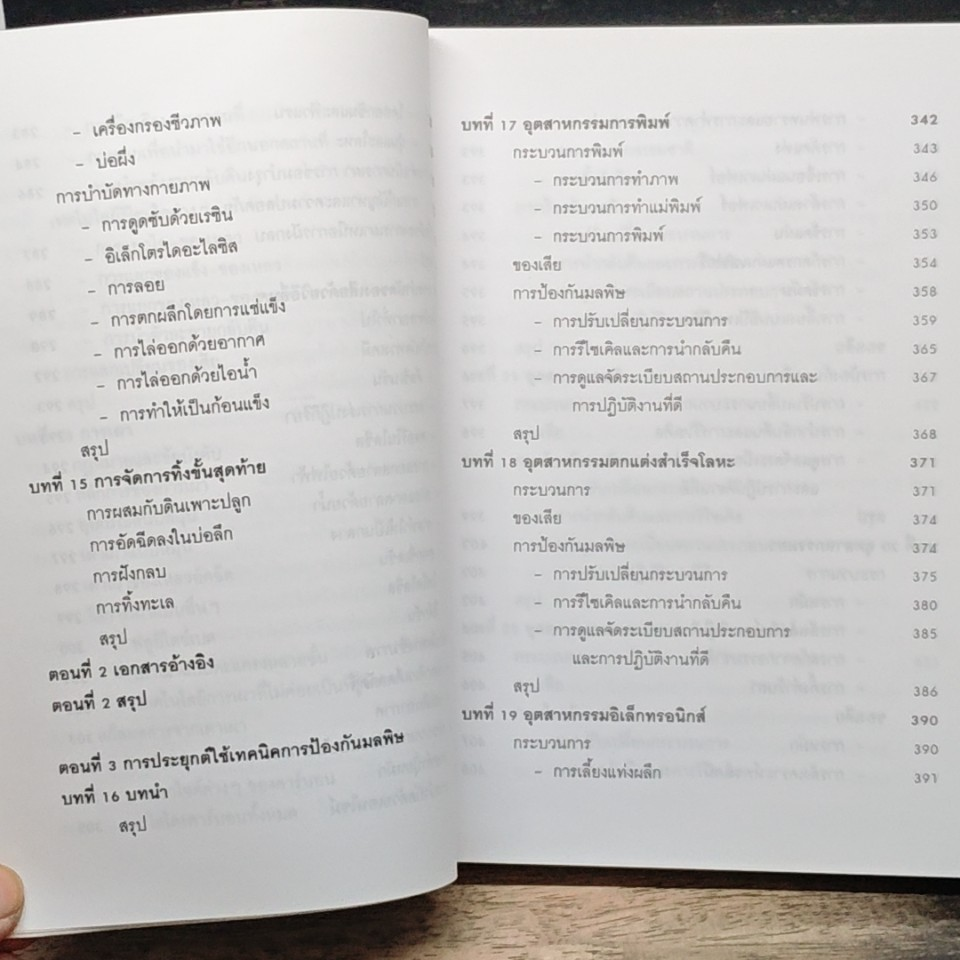 – เครื่องกรองชีวภาพ
– บ่อผึ่ง
การบำบัดทางกายภาพ
– การดูดซับด้วยเรซิน
– อิเล็กโตรไดอะไลซิส
– การลอย
– การตกผลึกโดยการแช่แข็ง
– การไล่ออกด้วยอากาศ
– การไล่ออกด้วยไอน้ำ
– การทำให้เป็นก้อนแข็ง
สรุป
บทที่ 15 การจัดการทิ้งขั้นสุดท้าย
การผสมกับดินเพาะปลูก
การอัดฉีดลงในบ่อลึก
การฝังกลบ
การทิ้งทะเล
สรุป
ตอนที่ 2 เอกสารอ้างอิง
ตอนที่ 2 สรุป
ตอนที่ 3 การประยุกต์ใช้เทคนิคการป้องกันมลพิษ
บทที่ 16 บทนำ
สรุป
บทที่ 17 อุตสาหกรรมการพิมพ์ 342
กระบวนการพิมพ์ 343
– กระบวนการทำภาพ 346
– กระบวนการทำแม่พิมพ์ 350
– กระบวนการพิมพ์ 353
ของเสีย 354
การป้องกันมลพิษ 358
– การปรับเปลี่ยนกระบวนการ 359
– การรีไซเคิลและการนำกลับคืน 365
– การดูแลจัดระเบียบสถานประกอบการและ 367
การปฏิบัติงานที่ดี
สรุป 368
บทที่ 18 อุตสาหกรรมตกแต่งสำเร็จโลหะ 371
กระบวนการ 371
ของเสีย 374
การป้องกันมลพิษ 374
– การปรับเปลี่ยนกระบวนการ 375
– การรีไซเคิลและการนำกลับคืน 380
– การดูแลจัดระเบียบสถานประกอบการ 385
และการปฏิบัติงานที่ดี
สรุป 386
บทที่ 19 อุตสาหกรรมอิเล็กทรอนิกส์ 390
กระบวนการ 390
– การเลี้ยงแท่งผลึก 391